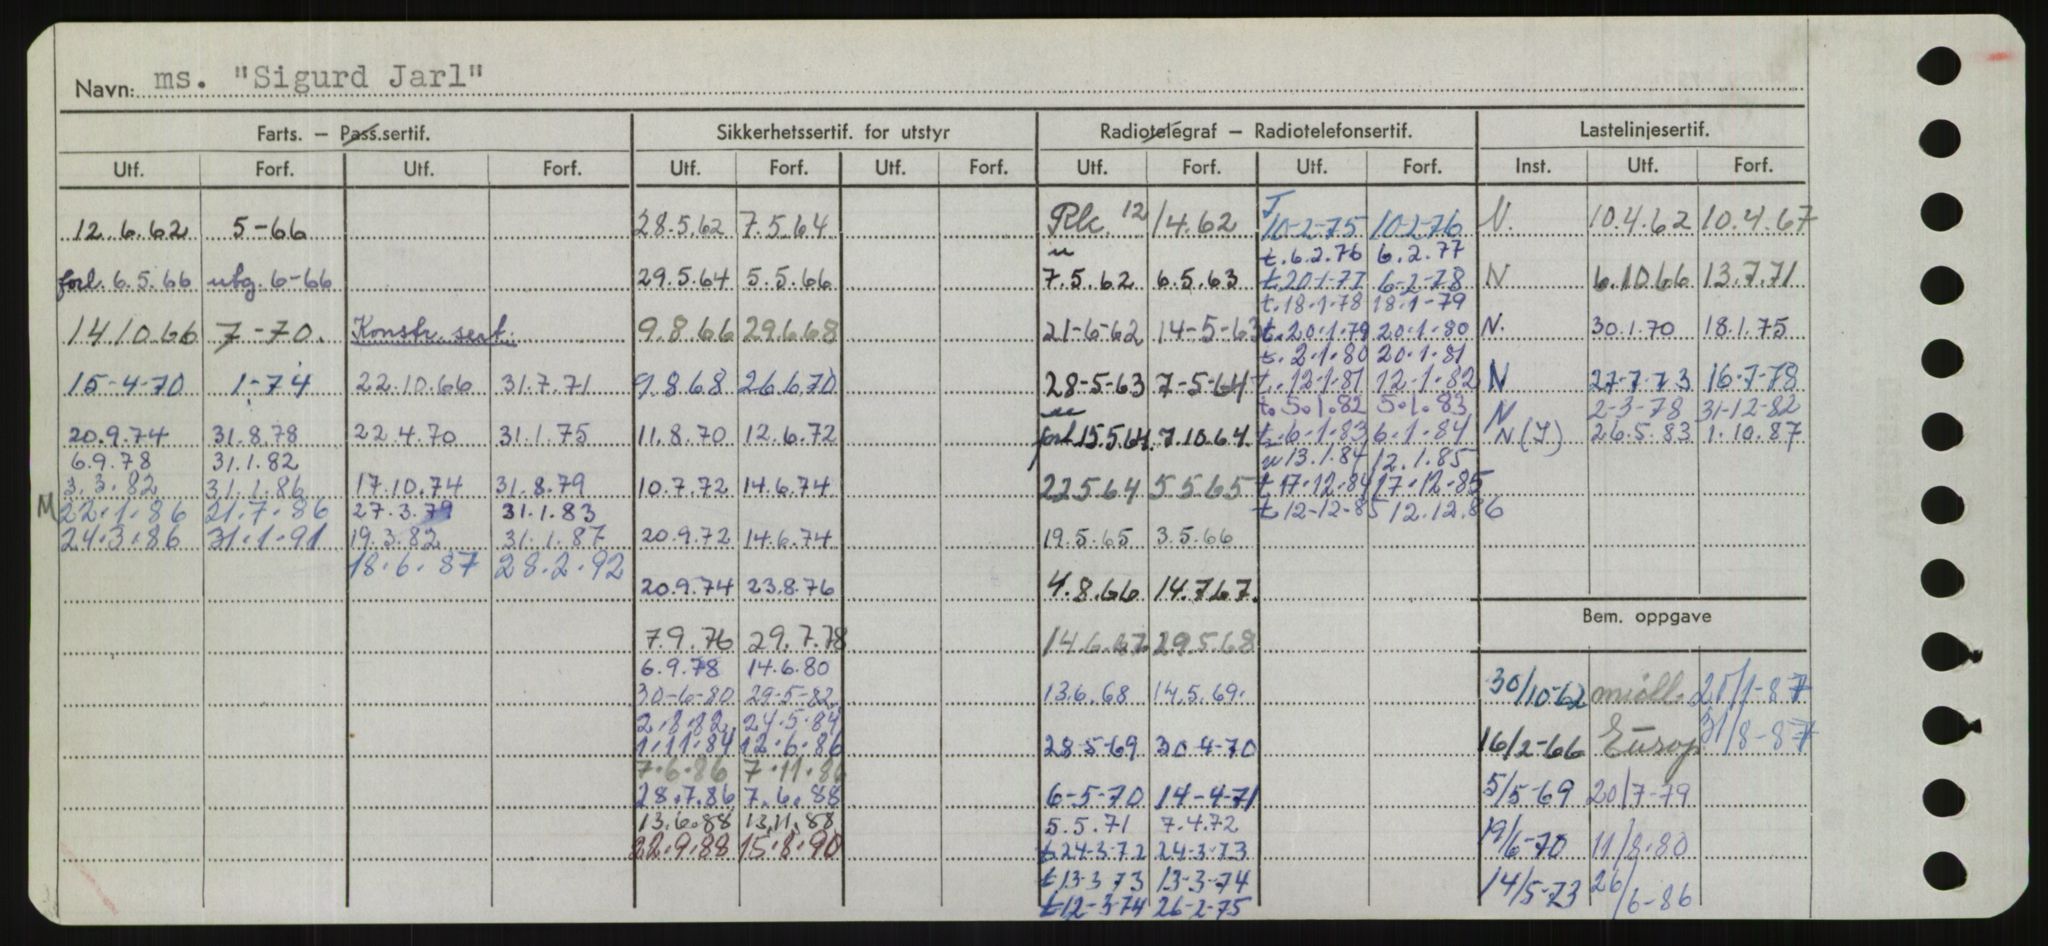 Navn: ms. "Sigurd Jarl"
Farts. – Pass.sertif. Sikkerhetssertif. for utstyr Radiotelegraf – Radiotelefonsertif. Lastelinjesertif.
Utf. Forf. Utf. Forf. Utf. Forf. Utf. Forf. Utf. Forf. Utf. Forf. Inst. Utf. Forf.
12.6.62 5-66
forl. 6.5.66 ubg. 6-66
14.10.66 7-70.
15-4-70 1-74
20.9.74 31.8.78
6.9.78 31.1.82
3.3.82 31.1.86
M 22.1.86 21.7.86
24.3.86 31.1.91
Konstr. sert.
22.10.66 31.7.71
22.4.70 31.1.75
17.10.74 31.8.79
27.3.79 31.1.83
19.3.82 31.1.87
18.6.87 28.2.92
28.5.62 7.5.64
29.5.64 5.5.66
9.8.66 29.6.68
9.8.68 26.6.70
11.8.70 12.6.72
10.7.72 14.6.74
20.9.72 14.6.74
20.9.74 23.8.76
7.9.76 29.7.78
6.9.78 14.6.80
30-6-80 29-5-82
2.8.82 24.5.84
1.11.84 12.6.86
7.6.86 7.11.86
28.7.86 7.6.88
13.6.88 13.11.88
22.9.88 15.8.90
12/4.62
7.5.62 6.5.63
21-6-62 14-5-63
28-5-63 7-5-64
forl. 15.5.64. 7.10.64
22.5.64 5.5.65
19.5.65 3.5.66
4.8.66 14.7.67.
14.6.67 29.5.68
13.6.68 14.5.69.
28-5-69 30-4-70
6-5-70 14-4-71
5.5.71 7.4.72
t 24-3-72 24-3-73
t 13-3-73 13-3-74
t 12-3-74 26-2-75
T
10-2-75 10-2-76
t. 6.2.76 6.2.77
t. 20-1-77 6-2-78
t. 18-1-78 18-1-79
t. 20.1.79 20.1.80
t. 2.1.80 20.1.81
t. 12.1.81 12.1.82
t. 5.1.82 5.1.83
t. 6.1.83 6.1.84
u 13.1.84 12.1.85
t 17.12.84 17.12.85
t 12-12-85 12.12.86
N. 10.4.62 10.4.67
N 6.10.66 13.7.71
N. 30.1.70 18.1.75
N 27-7-73 16-7-78
N 2-3-78 31-12-82
N (I) 26.5.83 1.10.87
Bem. oppgave
30/10-62 28/1-87
16/2-66 Europ 31/8-87
5/5-69 20/7-79
19/6-70 11/8-80
14/5-73 26/6-86